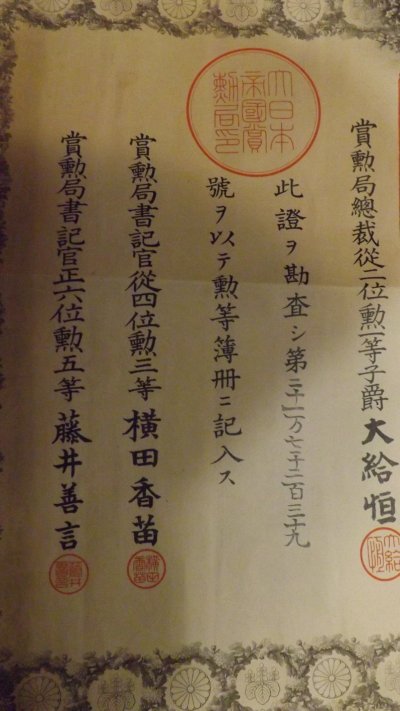 賞勲局總裁從二位勲一等子爵大給恒
大給恒
此證ヲ勘査シ第三十一万七千二百三十九
大日本
帝國賞
勲局印
號ヲ以テ勲等簿冊ニ記入ス
賞勲局書記官從四位勲三等横田香苗
横田
香苗
賞勲局書記官正六位勲五等藤井善言
藤井
善言